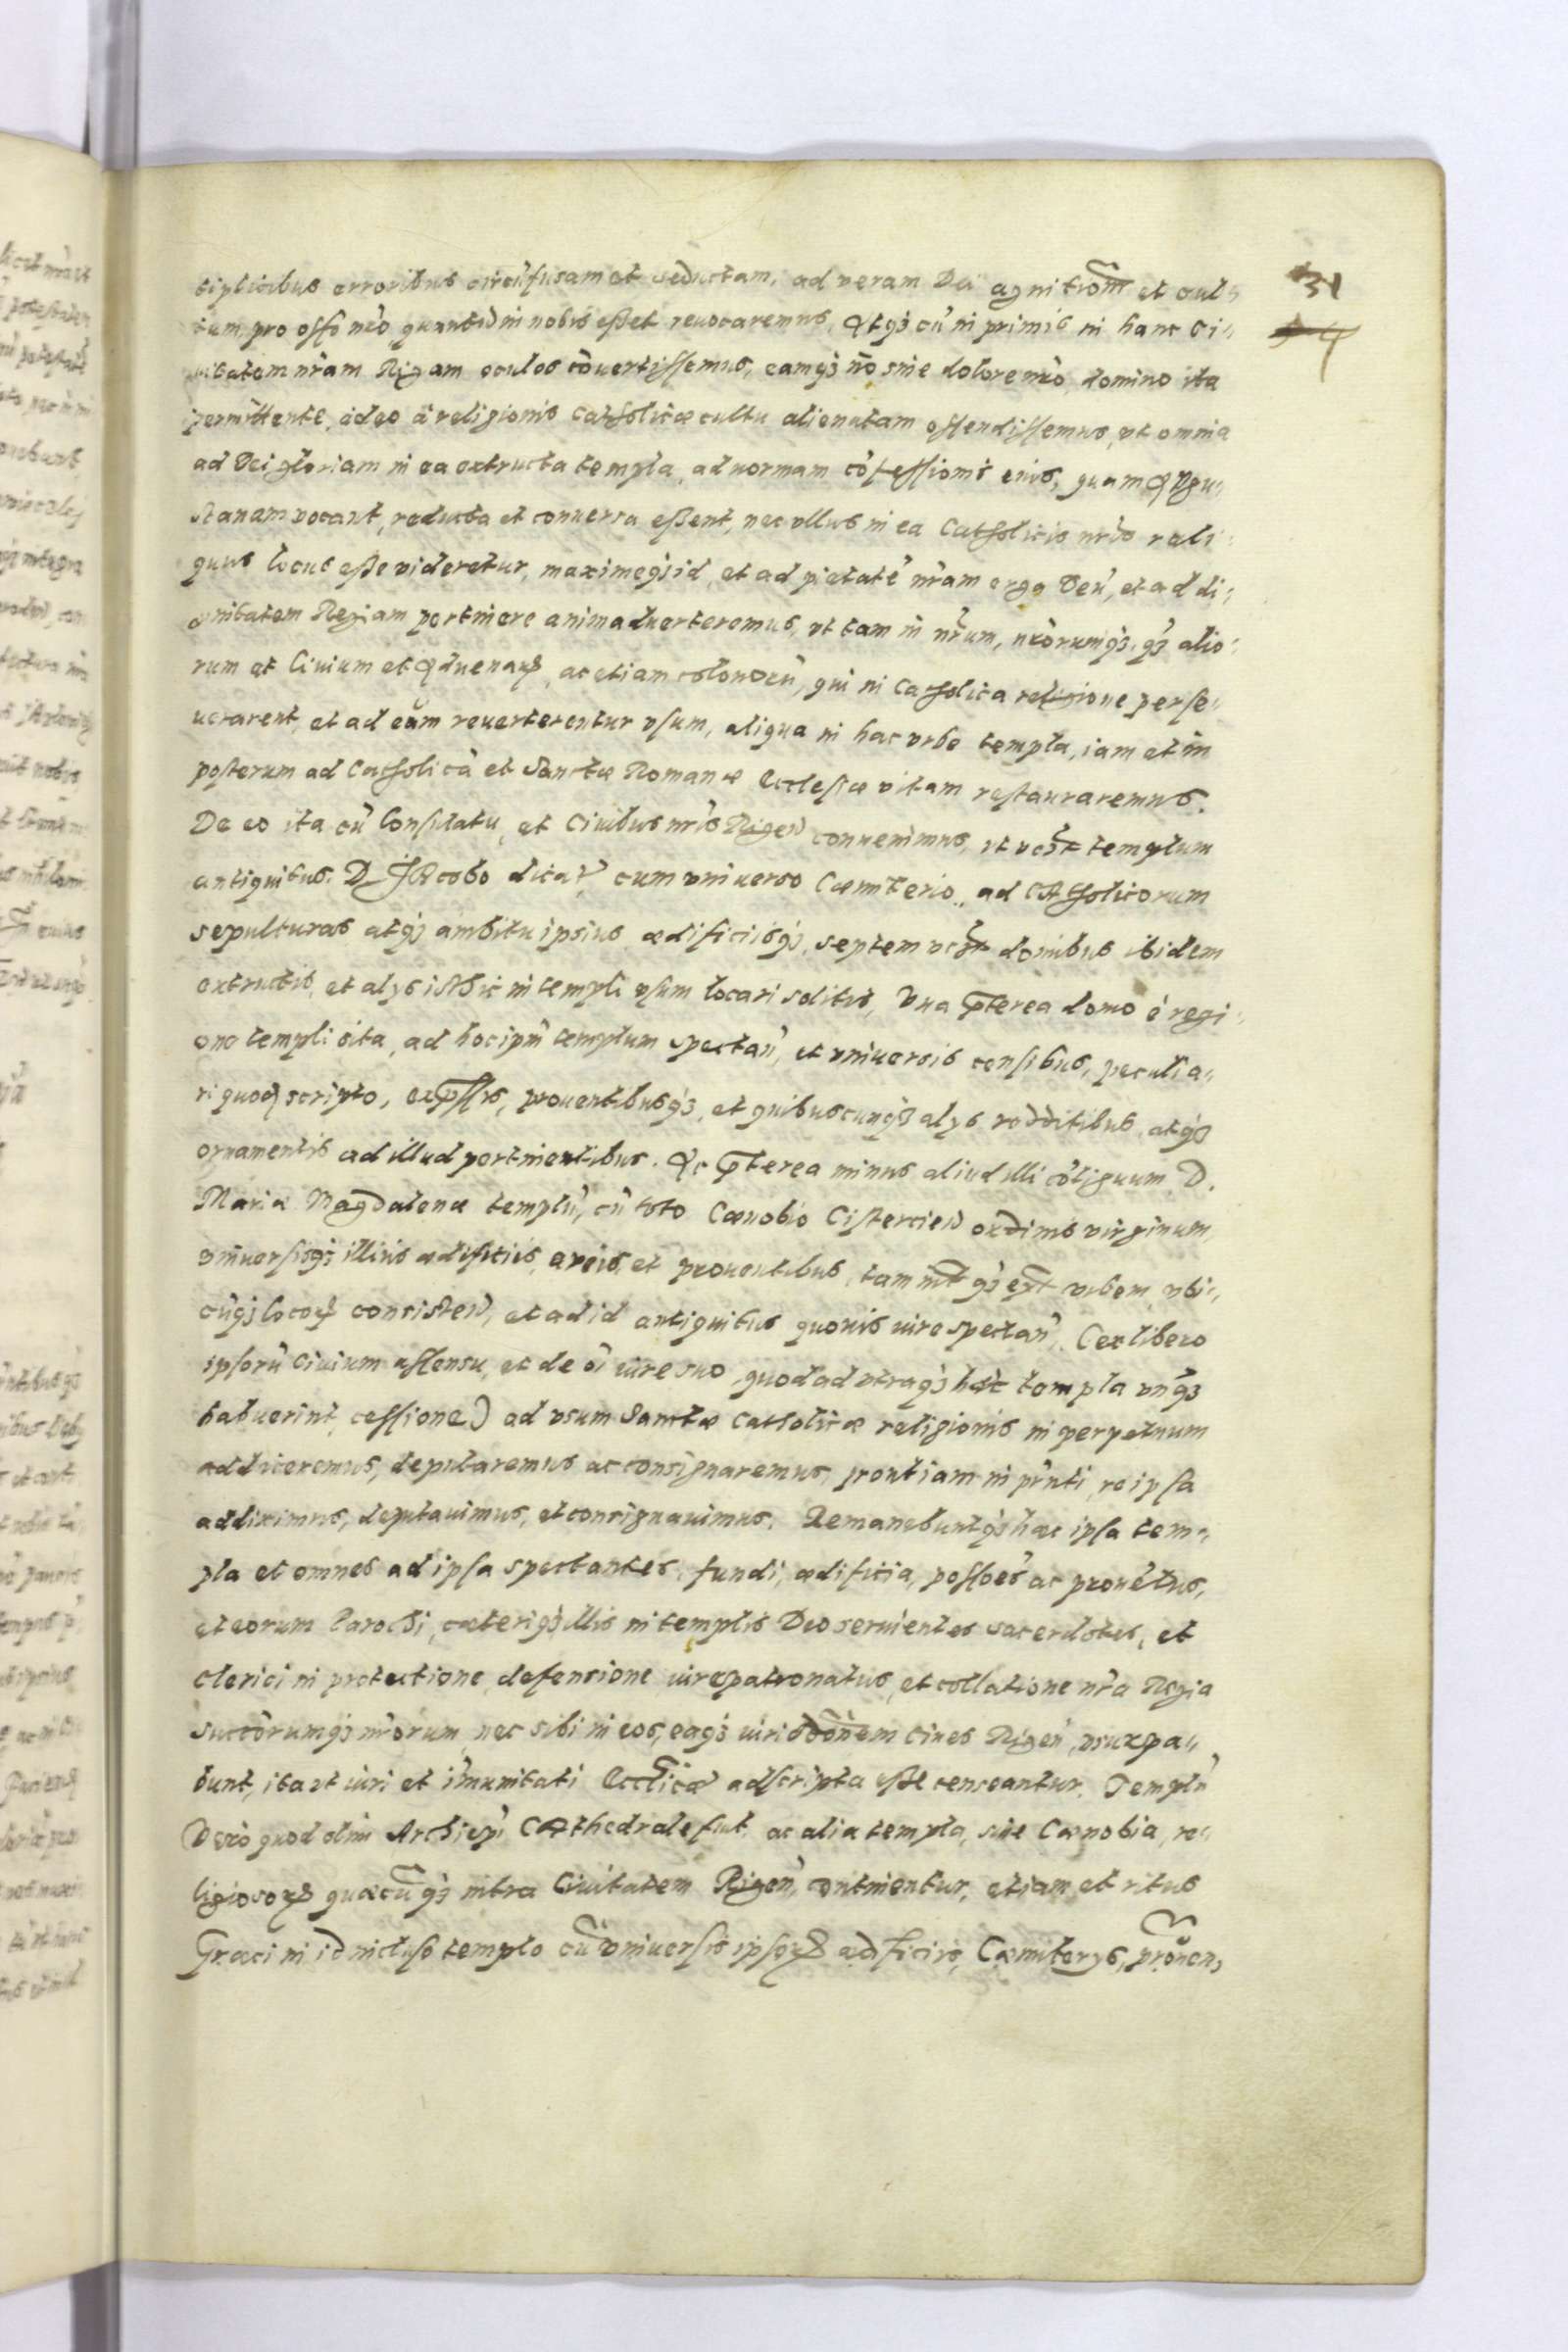 31
tiplicibus erroribus circũfusam et seductam, ad veram Dei agnitiom̃ et cul„
tum pro offõ nrõ, quantũ in nobis eßet revocaremus, Atqȝ cũ in primis in hanc Ci„
uitatem nrãm Rigam oculos cõuertissemus, eamqȝ nõ sine dolore nrõ, domino ita
permittente, adeo à religionis Catholicæ cultu alienatam offendissemus, vt omnia
ad Dei gloriam in ea extructa templa, ad normam cõfessionis eius, quam Augu„
stanam vocant, reducta et conuersa eßent, nec vllus in ea Catholicis nrĩs reli„
quus locus eße videretur, maximeqȝ id, et ad pietatẽ nrãm erga Deũ, et ad di„
gnitatem Regiam pertinere animaduerteremus, vt tam in nrũm, nrõrumqȝ, qȝ alio„
rum et Ciuium et Aduenarꝝ, ac etiam colonorũ, qui in Catholica religione perse„
uerarent, et ad eam reuerterentur vsum, aliqua in hac vrbe templa, iam et in
posterum ad Catholicã et Sanctæ Romanæ Ecclesiæ vitam restauraremus.
De eo ita cũ Consulatu, et Ciuibus nrĩs Rigeñ conuenimus, vt templum
antiquitus D. Jacobo dicatũ cum vniuerso Cœmiterio, ad Catholicorum
sepulturas atqȝ ambitu ipsius ædificiisqȝ, septem domibus ibidem
extructis, et alijs isthic in templi vsum locari solitis, Vna p̃terea domo è regi„
one templi sita, ad hoc ipm̃ templum spectañ, et vniuersis censibus, peculia„
ri quoqȝ scripto, exp̃ssis, prouentibusqȝ, et quibuscunqȝ alijs redditibus, atqȝ
ornamentis ad illud pertinentibus. Ac p̃terea minus aliud illi cõtiguum D.
Mariæ Magdalenæ templũ, cũ toto Cœnobio Cistercień ordinis virginum
vniuersisqȝ illius ædificiis, areis, et prouentibus, tam int̃ qȝ ext̃ vrbem, vbi„
cũqȝ locorꝝ consisteñ, et ad id antiquitus quouis iure spectañ, (ex libero
ipsorũ Ciuium assensu, et de oĩ iure suo, quod ad vtraqȝ hæc templa vnq̃ȝ
habuerint, cessione) ad vsum Sanctæ Catholicæ religionis in perpetuum
addiceremus, deputaremus ac consignaremus, prout iam in prñti, re ipsa
addiximus, deputauimus, et consignauimus. Remanebuntqȝ hæc ipsa tem„
pla et omnes ad ipsa spectantes, fundi, ædificia, possões ac prouẽtus,
et eorum Parochi, cæteriqȝ illis in templis Deo seruientes sacerdotes, et
clerici in protectione, defensione iurepatronatus, et collatione nrã Regia
succõrumqȝ nrõrum, nec sibi in eos, eaqȝ iurisdõnem Ciues Rigeñ, vsurpa„
bunt, ita vt iuri et im̃unitati Eccl̃icæ adscripta eße censeantur. Templũ
Verò quod olim Archiepĩ Cathedrale fuit, ac alia templa, siue Cœnobia, re„
ligiosorꝝ quæcũqȝ intra Ciuitatem Rigeñ, continentur, etiam et ritus
Græci in id incluso templo cũ vniuersis ipsorꝝ ædificiis, Cœmiterijs, prouen„